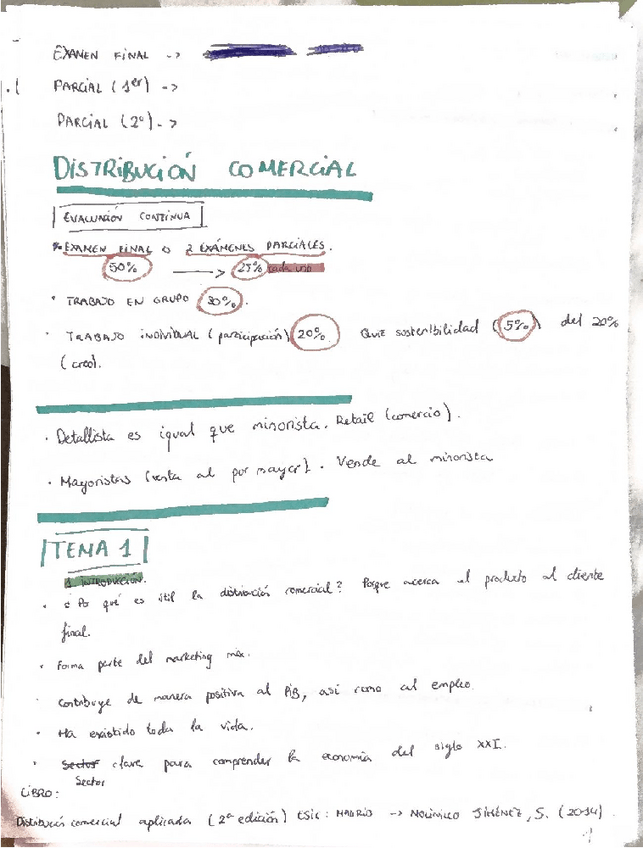 EXAMEN FINAL ->
PARCIAL (1er) ->
PARCIAL (2º) ->
DISTRIBUCIÓN COMERCIAL
EVALUACIÓN CONTINUA
EXAMEN FINAL O 2 EXÁMENES PARCIALES.
50% -> 25% cada uno
· TRABAJO EN GRUPO 30%.
· TRABAJO INDIVIDUAL (participación) 20%. Quiz sostenibilidad (5%) del 20%
(creo).
· Detallista es igual que minorista. Retail (comercio).
· Mayoristas (venta al por mayor). Vende al minorista
TEMA 1
1 INTRODUCCIÓN.
· ¿Por qué es útil la distribución comercial? Porque acerca el producto al cliente
final.
· Forma parte del marketing mix.
· Contribuye de manera positiva al PIB, así como al empleo.
· Ha existido toda la vida.
· Sector clave para comprender la economía del siglo XXI.
Sector
LIBRO:
Distribución comercial aplicada (2ª edición) ESIC: MADRID -> JIMÉNEZ, S. (2014).